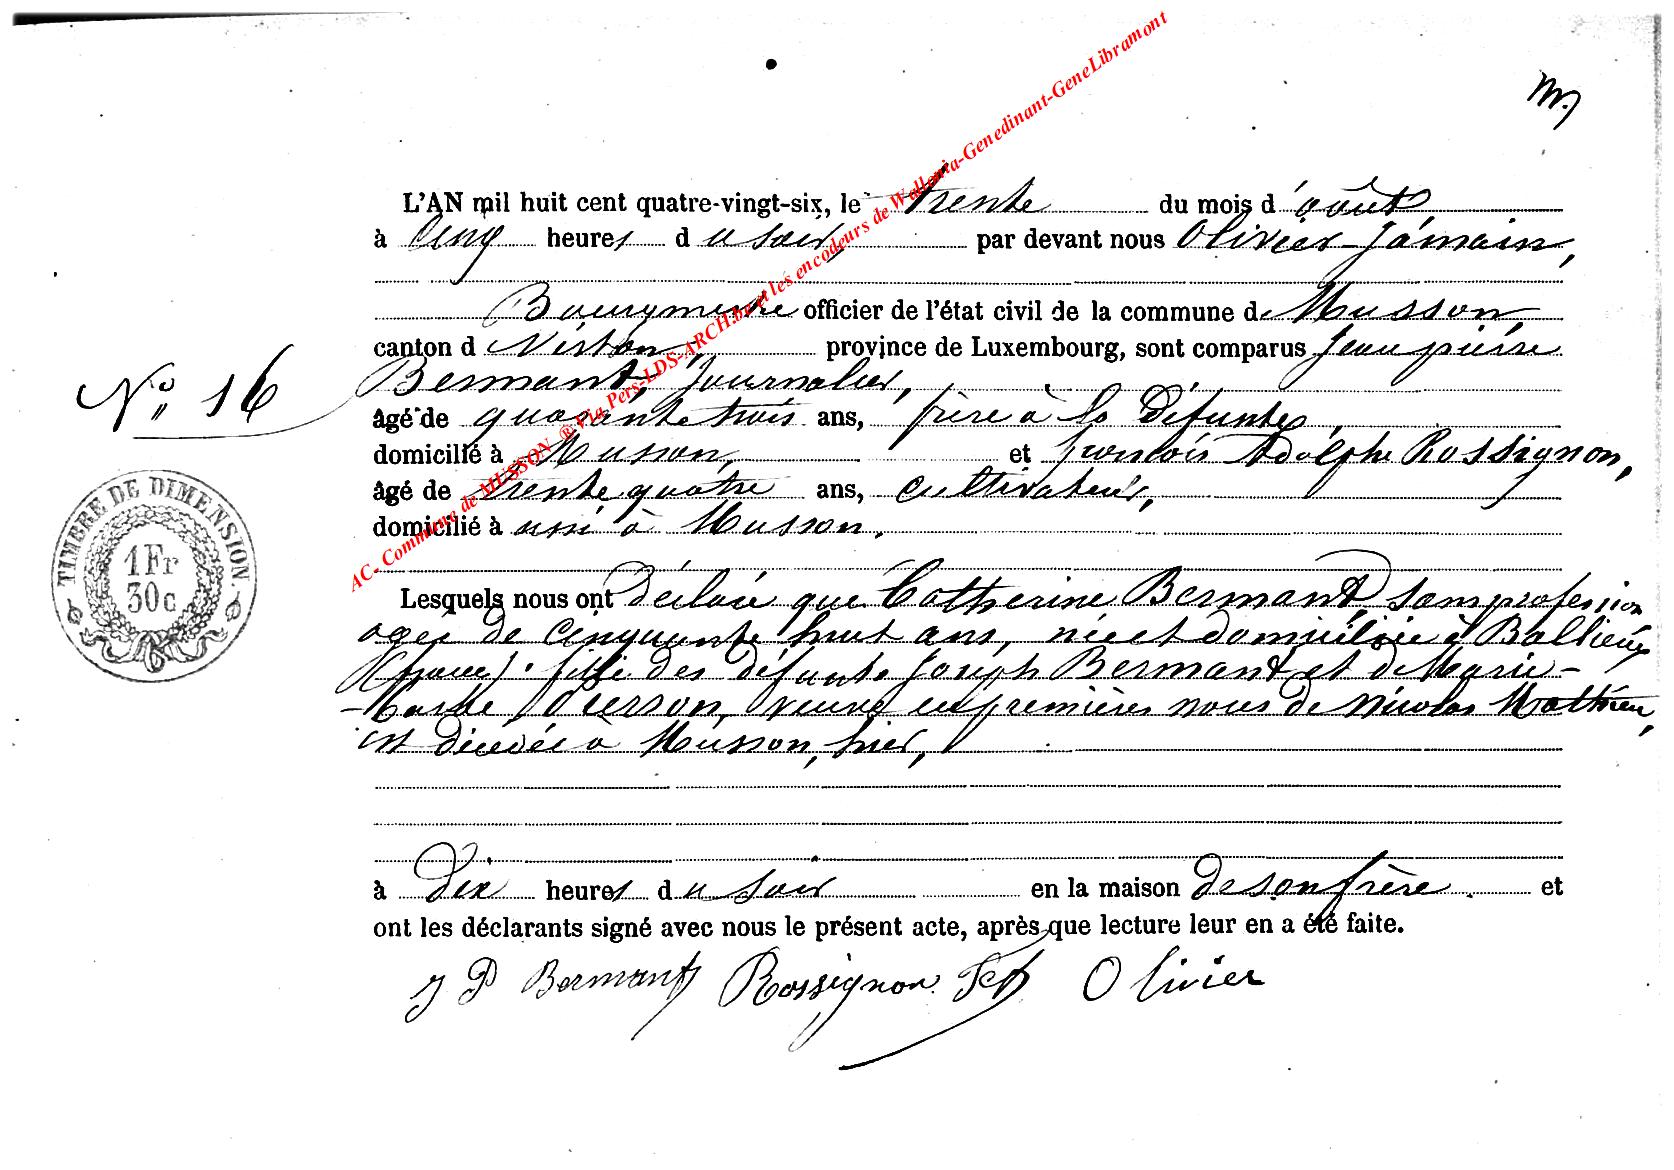 L'AN mil huit cent quatre-vingt-six, le trente du mois d'août
à cinq heures du soir, par devant nous Olivier Jamain,
Bourgmestre officier de l'état civil de la commune de Musson,
canton d Virton, province de Luxembourg, sont comparus Jean pierre
Bermant, journalier,
N° 16
âgé de quarante trois ans, frère à la défunte,
domicilié à Musson, et françois Adolphe Rossignon,
âgé de trente quatre ans, cultivateur,
domicilié à aussi à Musson.
TIMBRE DE DIMENSION
1 Fr
30c
Lesquels nous ont déclaré que Catherine Bermant, sans profession
agée de cinquante huit ans, née et domiciliée à Ballieux
(france) fille des défunts Joseph Bermant et de Marie-
Pierson, veuve en premières noces de Nicolas Mathieu,
est décédée à Musson, hier,
à dix heures du soir en la maison de son frère. et
ont les déclarants signé avec nous le présent acte, après que lecture leur en a été faite.
J P Bermant Rossignon Olivier
AC- Commune de MUSSON ® Via Pers-LDS-ARCH.be et les encodeurs de Wallonia-Genedinant-GeneLibramont